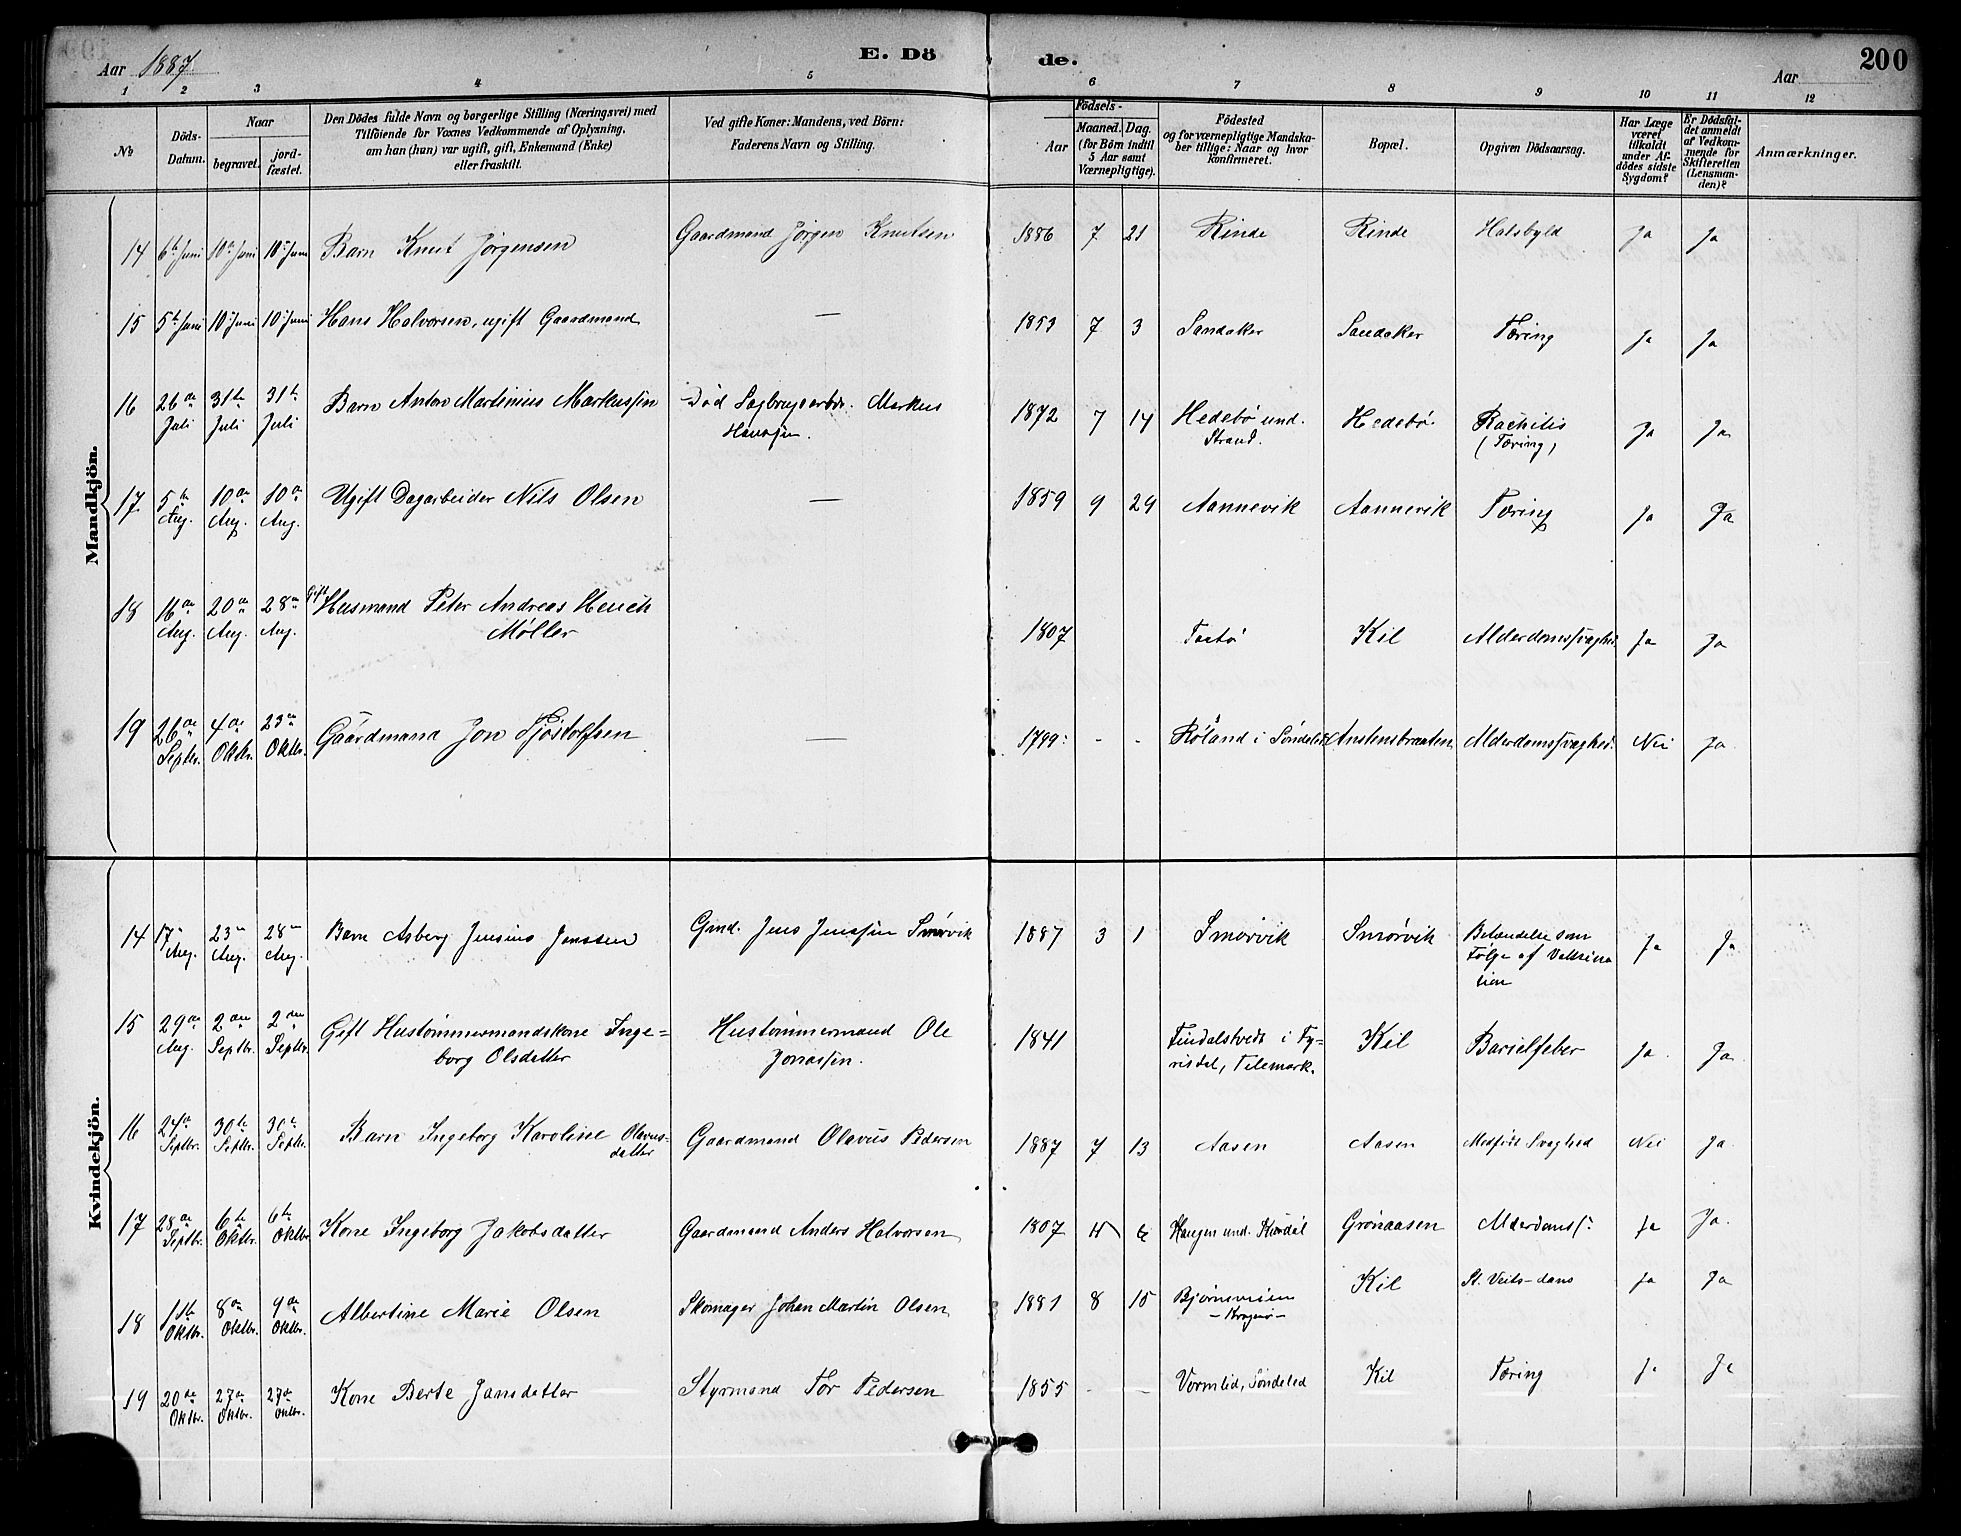 Aar 1887. E. Dö de. Aar 200
1 2 3 4 5 6 7 8 9 10 11 12
№ Döds-Datum. Naar begravet. jordfæstet. Den Dödes fulde Navn og borgerlige Stilling (Næringsvei) med Tilföiende for Voxnes Vedkommende af Oplysning, om han (hun) var ugift, gift, Enkemand (Enke) eller fraskilt. Ved gifte Koner: Mandens, ved Börn: Faderens Navn og Stilling. Födsels- Aar Maaned. Dag. (for Börn indtil 5 Aar samt Værnepligtige). Födested og for værnepligtige Mandskaber tillige: Naar og hvor konfirmeret. Bopæl. Opgiven Dödsaarsag. Har Læge været tilkaldt under Afdödes sidste Sygdom? Er Dödsfaldet anmeldt af Vedkommende for Skifteretten (Lensmanden)? Anmærkninger.
Mandkjön.
14 6te Juni 10de Juni 10de Juni Barn Knut Jörgensen Gaardmand Jörgen Knutsen 1886 7 21 Rinde Rinde Halsbyld Ja Ja
15 5te Juni 10 Juni 10 Juni Hans Halvorsen, ugift Gaardmand — 1853 7 3 Sandaker Sandaker Tæring Ja Ja
16 26de Juli 31te Juli 31te Juli Barn Anton Martinius Markussen Död Sagbrugsarbdr. Markus Hanssen. 1872 7 14 Hedebö und. Strand. Hedebö Rachitis (Tæring) Ja Ja
17 5te Aug. 10de Aug. 10de Aug. Ugift Dagarbeider Nils Olsen — 1859 9 29 Aannevik Aannevik Tæring Ja Ja
18 16de Aug. 20de Aug. 28de Aug. Gift Husmand Peter Andreas Heuch Möller 1807 Tastö Kil Alderdomssvaghed. Ja Ja
19 26de Septbr. 4de Oktbr. 23de Oktbr. Gaardmand Jon Tjöstolfsen — 1799: - - Röland i Söndeled Anstensbraaten Alderdomssvaghed. Nei Ja
Kvindekjön.
14 17de Aug. 23de Aug. 28de Aug. Barn Asberg Jensine Jenssen Gmd. Jens Jenssen Smörvik 1887 3 1 Smörvik Smörvik Betændelse som Følge af Vaksination Ja Ja
15 29de Aug. 2den Septbr. 2den Septbr. Gift Hustömmermandskone Ingeborg Olsdatter Hustömmermand Ole Jonassen. 1841 i Tyrisdal, Telemark. Kil Barselfeber Ja Ja
16 24de Septbr. 30te Septbr. 30te Septbr. Barn Ingeborg Karoline Olavusdatter Gaardmand Olavus Pedersen 1887 7 13 Aasen Aasen Medfödt Svaghed Nei Ja
17 28de Septbr. 6te Oktbr. 6te Oktbr Kone Ingeborg Jakobsdatter Gaardmand Anders Halvorsen 1807 4 6 Haugen und. Grönaasen Alderdomss: Ja Ja.
18 1ste Oktbr. 8de Oktbr. 9de Oktbr. Albertine Marie Olsen Skomager Johan Martin Olsen 1881 8 15 Björneveien — Kragerö — Kil St. Veits-dans Ja Ja
19 20de Oktbr. 27de Oktbr. 27de Oktbr. Kone Berte Jansdatter Styrmand Tor Pedersen 1855 - - Vormlid, Söndeled Kil Tæring Ja Ja